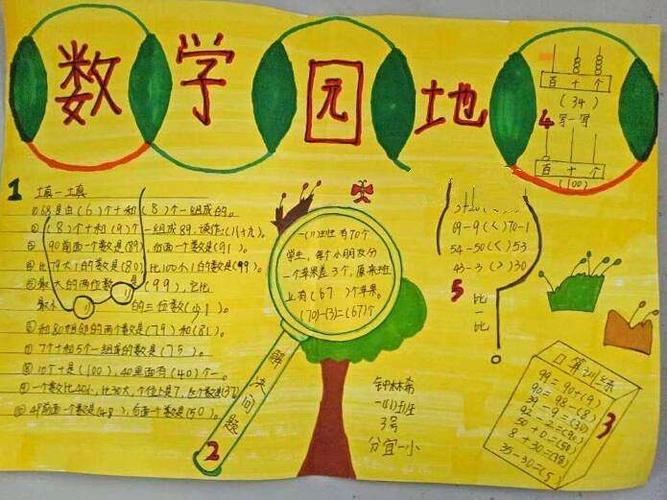 数学园地
百 十 个
(34)
4 写一写
百 十 个
(100)
1 填一填
①68是由(6)个十和(8)个一组成的。
②(8)个十和(9)个一组成89,读作(八十九)。
③90前面一个数是(89),后面一个数是(91)。
④比79大1的数是(80),比100小1的数是(99)。
⑤最大的两位数是(99),它比
最小的三位数(小1)。
⑥和80相邻的两个数是(79)和(81)。
⑦7个十和5个一组成的数是(75)。
⑧10个十是(100),40里面有(40)个一。
⑨一个数比40小,比30大,个位上是7,这个数是(37)
⑩49前面一个数是(48),后面一个数是(50)。
一(1)班有70个
学生,每个小朋友分
一个苹果差3个,原来班
上有(67)个苹果。
(70)-(3)=(67)个
解决问题
2
69-9(<)70-1
54-50(<)53
43-3(>)30
5 比一比
钟林希
一(4)班
3号
分宜一小
口算训练
99=90+(9)
90=98-(8)
39-9=(30)
92-2=(90)
50+0=(50)
8+30=(38)
35-30=(5)
3